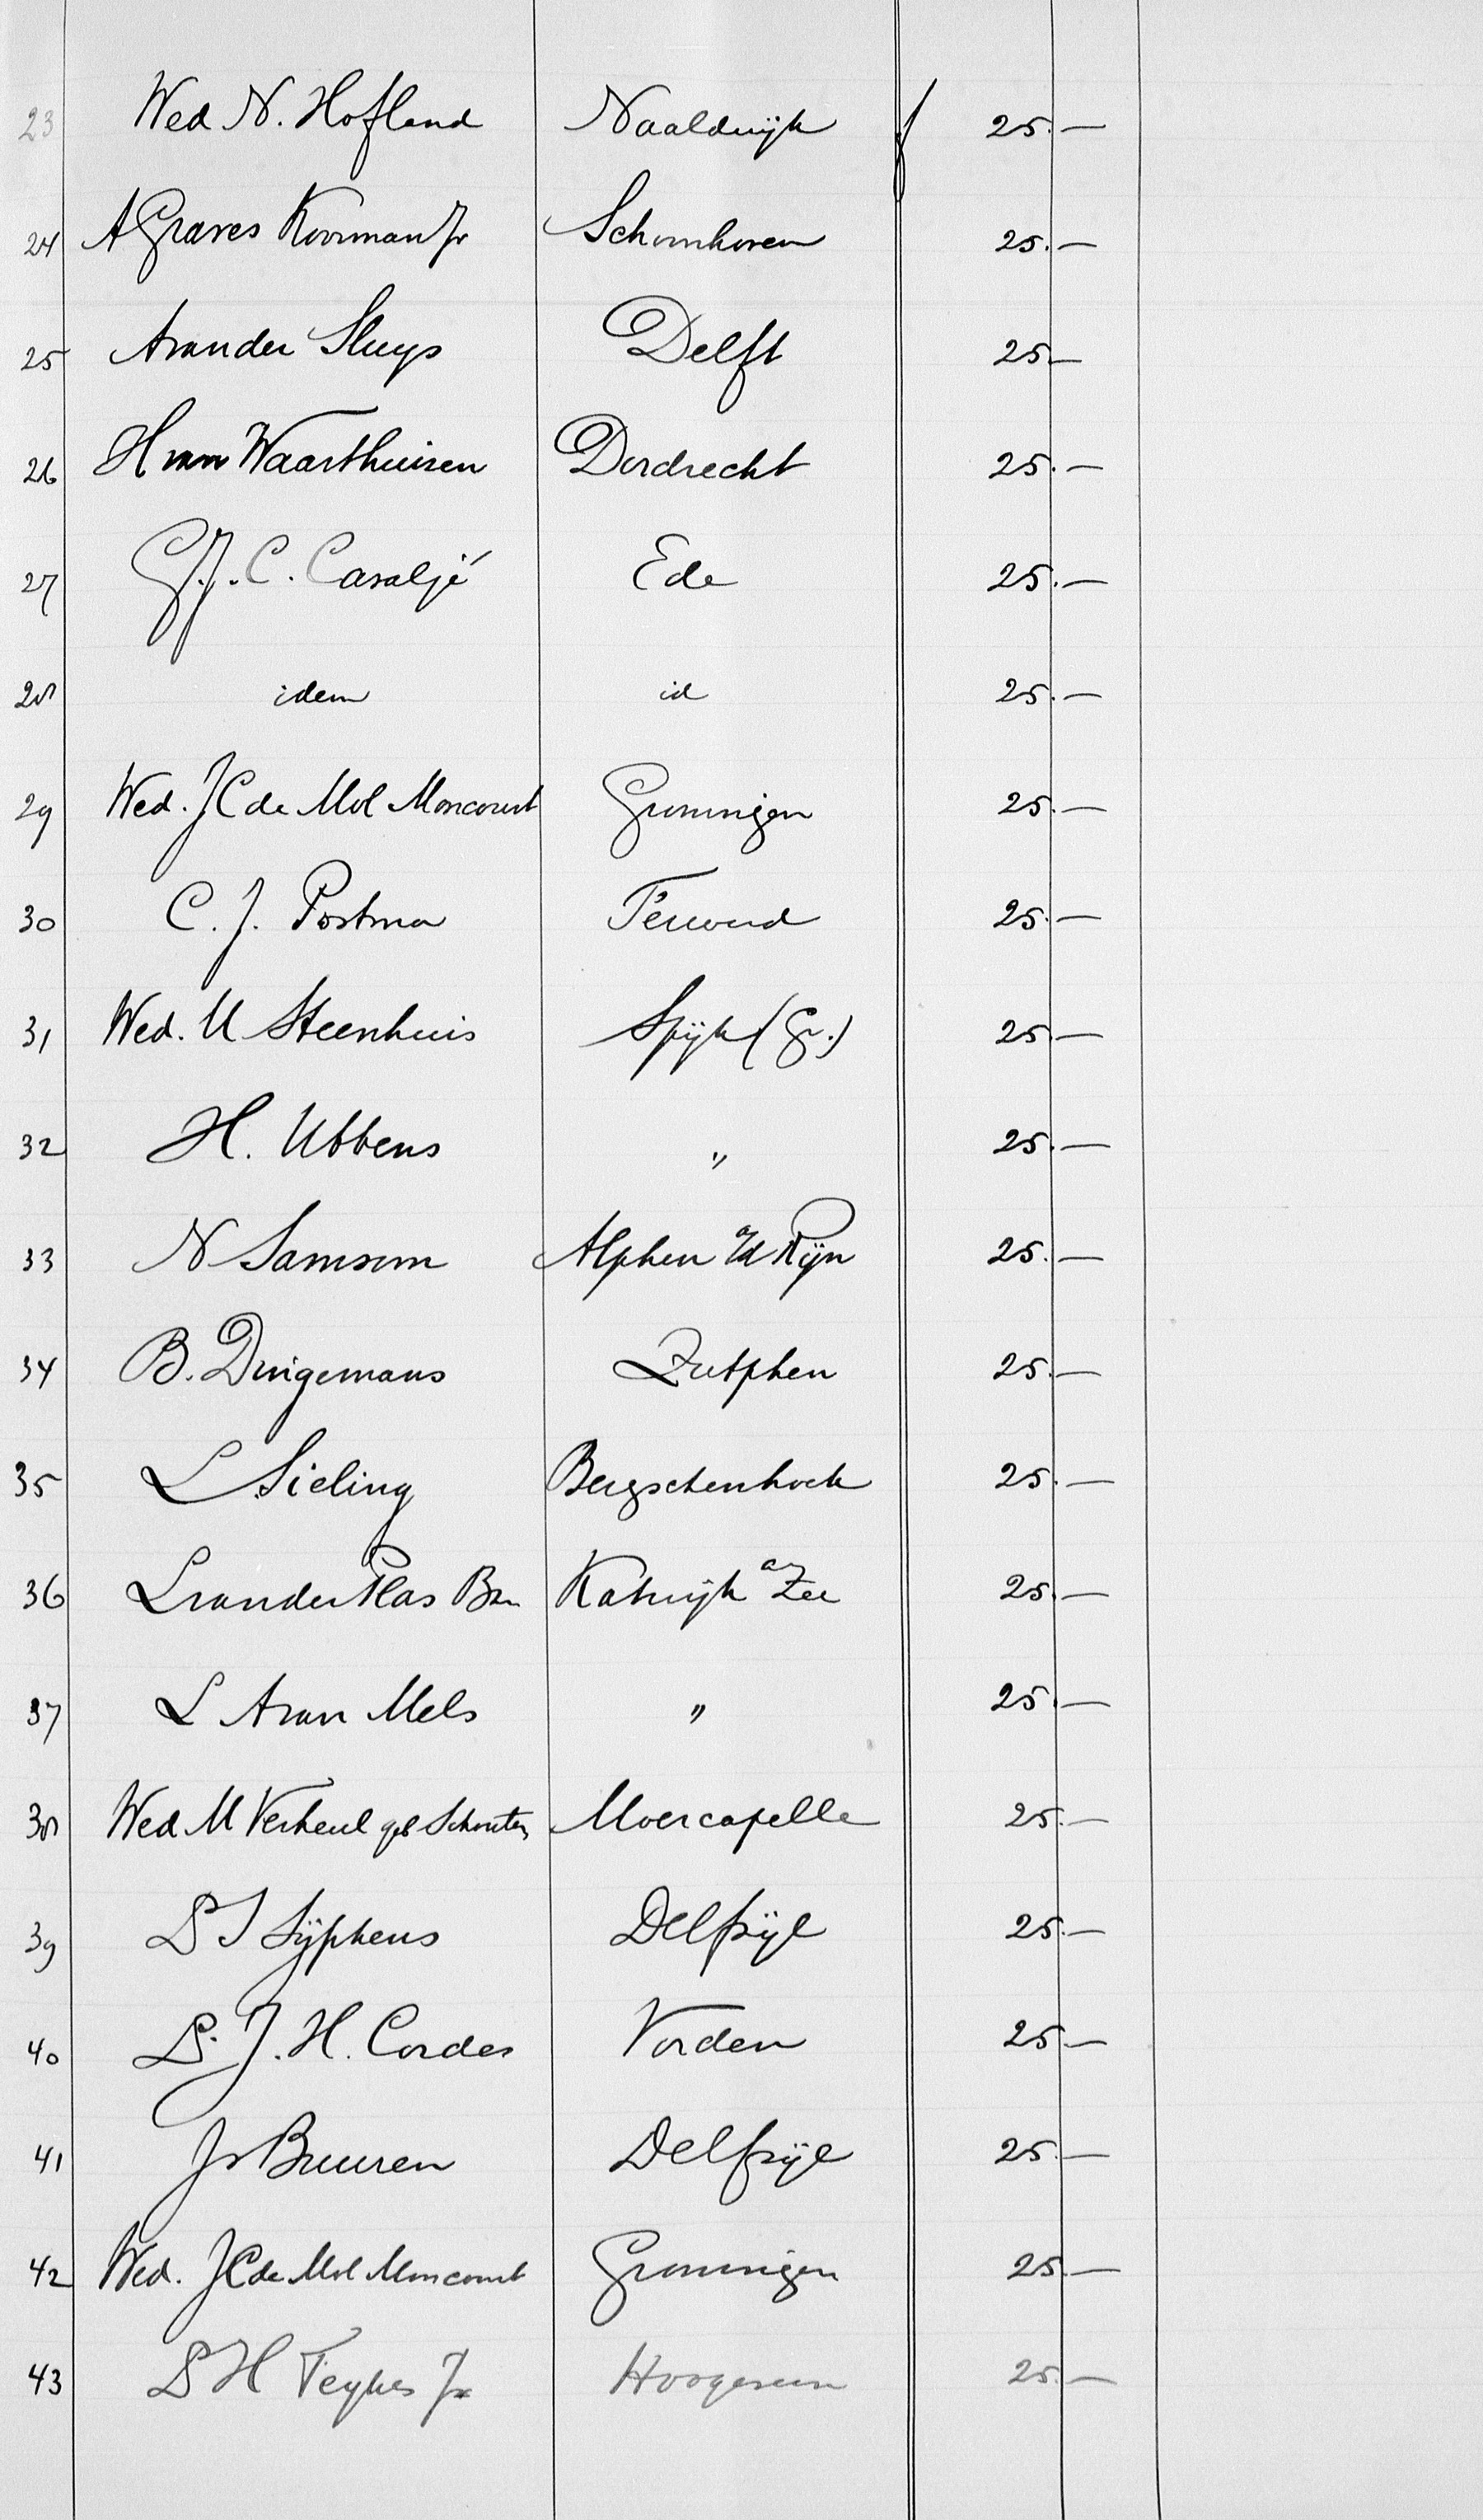 23 Wed N. Hofland Naaldwijk f 25.—
24 A Graves Kooiman Jr Schoonhoven 25.—
25 A van der Sluys Delft 25—
26 H van Waarthuizen Dordrecht 25.—
27 G.J.C. Cavaljé Ede 25.—
28 idem id 25.—
29 Wed. J C de Mol Moncourt Groningen 25.—
30 C. J. Postma Ferwerd 25.—
31 Wed. U Steenhuis Spijk (Gr.) 25.—
32 H. Ubbens " 25.—
33 N Samsom Alphen a/d Rijn 25.—
34 B. Dingemans Zutphen 25.—
35 L Sieling Bergschenhoek 25.—
36 L van der Plas Bzn Katwijk a Zee 25.—
37 L A van Mels " 25.—
38 Wed M Verheul geb Schouten Moercapelle 25.—
39 Ds J Sijpkens Delfzijl 25.—
40 Ds. J. H. Cordes Vorden 25.—
41 Buuren Delfzijl 25.—
42 Wed. J C de Mol Moncourt Groningen 25.—
43 Ds H Teykes Jr Hoogeveen 25.—